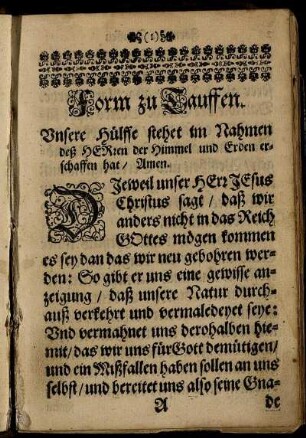 (1)
Form zu Tauffen.
Vnsere Hülffe stehet im Nahmen
deß HERren der Himmel und Erden er-
schaffen hat / Amen.
DJeweil unser HErr JEsus
Christus sagt / daß wir
anders nicht in das Reich
GOttes mögen kommen
es sey dan das wir neu gebohren wer-
den: So gibt er uns eine gewisse an-
zeigung / daß unsere Natur durch-
auß verkehrt und vermaledeyet seye:
Vnd vermahnet uns derohalben hie-
mit / das wir uns für Gott demütigen /
und ein Mißfallen haben sollen an uns
selbst / und bereitet uns also seine Gna-
A de